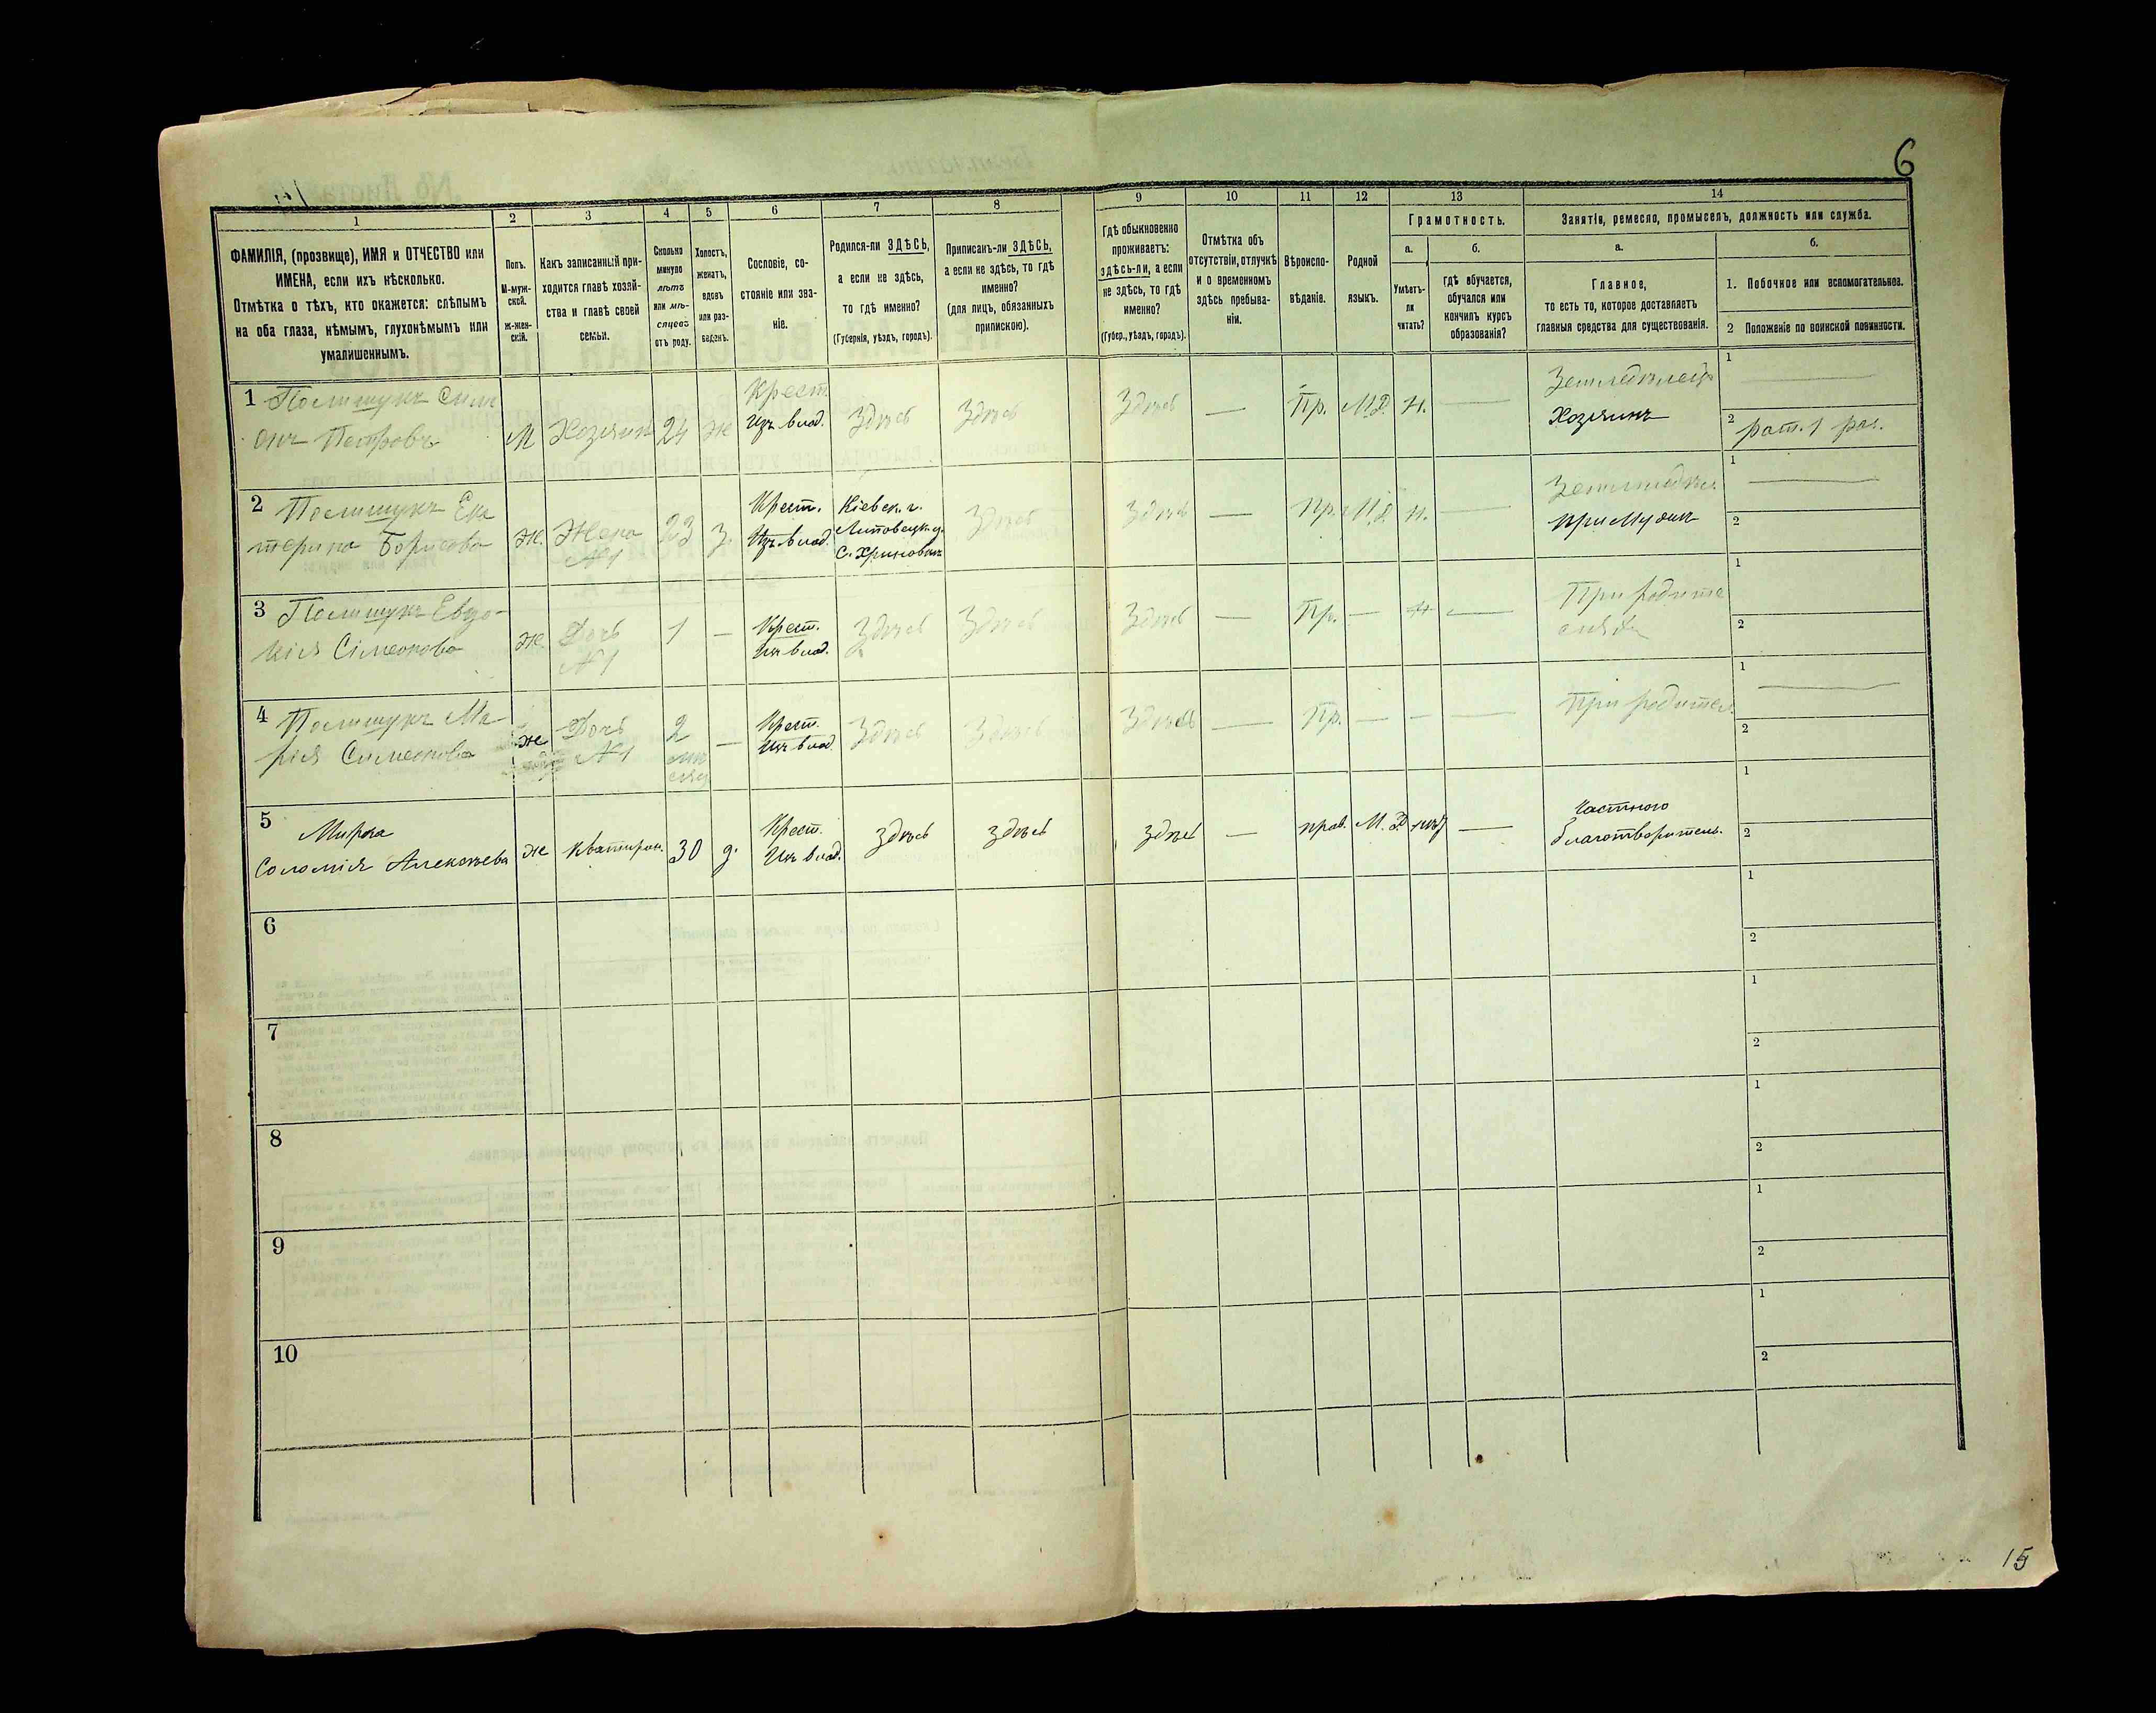 6
1
2
3
4
5
6
7
8
9
10
11
12
13
14
ФАМИЛІЯ, (прозвище), ИМЯ и ОТЧЕСТВО или
ИМЕНА, если ихъ нѣсколько.
Отмѣтка о тѣхъ, кто окажется: слѣпымъ
на оба глаза, нѣмымъ, глухонѣмымъ или
умалишеннымъ.
Полъ.
М-муж-
ской.
ж-жен-
скій.
Какъ записанный при-
ходится главѣ хозяй-
ства и главѣ своей
семьи.
Сколько
минуло
лѣтъ
или мѣ-
сяцевъ
отъ роду.
Холостъ,
женатъ,
вдовъ
или раз-
веденъ.
Сословіе, со-
стояніе или зва-
ніе.
Родился-ли ЗДѢСЬ,
а если не здѣсь,
то гдѣ именно?
(Губернія, уѣздъ, городъ).
Приписанъ-ли ЗДѢСЬ,
а если не здѣсь, то гдѣ
именно?
(для лицъ, обязанныхъ
припискою).
Гдѣ обыкновенно
проживаетъ:
здѣсь-ли, а если
не здѣсь, то гдѣ
именно?
(Губер., уѣздъ, городъ).
Отмѣтка объ
отсутствіи, отлучкѣ
и о временномъ
здѣсь пребыва-
ніи.
Вѣроиспо-
вѣданіе.
Родной
языкъ.
Грамотность.
а.
б.
Умѣетъ-
ли
читать?
гдѣ обучается,
обучался или
кончилъ курсъ
образованія?
Занятія, ремесло, промыселъ, должность или служба.
а.
б.
Главное,
то есть то, которое доставляетъ
главныя средства для существованія.
1. Побочное или вспомогательное.
2 Положеніе по воинской повинности.
1 Полищукъ Сим
онъ Петровъ
М
Хозяинъ
24
ж
Крест.
изъ влад.
Здѣсь
Здѣсь
Здѣсь
—
Пр.
М.Р.
н.
—
Земледѣлецъ
Хозяинъ
1 —
2 рат. 1 раз.
2 Полищукъ Ека
терина Борисова
ж.
Жена
№1
23
з.
Крест.
Изъ влад.
Кіевск. г.
Липовецк. у.
Здѣсь
Здѣсь
—
Пр.
М.Р.
н.
—
Земледѣл.
при мужѣ
1 —
2
3 Полищукъ Евдо-
кія Сімеонова
ж.
Дочь
№1
1
—
Крест.
Изъ влад.
Здѣсь
Здѣсь
Здѣсь
—
Пр.
—
н
—
При родите
1
2
4 Полищукъ Ма-
рія Симеонова
ж
Дочь
№1
2
мѣ
сяц
—
Крест.
Изъ влад.
Здѣсь
Здѣсь
Здѣсь
—
Пр.
—
—
—
При родител.
1 —
2
5
Соломія Алексѣева
ж
Кватиран.
30
д.
Крест.
Изъ влад.
здѣсь
здѣсь
здѣсь
—
прав.
М. Р
нѣт
—
Частного
благотворитель.
1
2
6
1
2
7
1
2
8
1
2
9
1
2
10
1
2
15